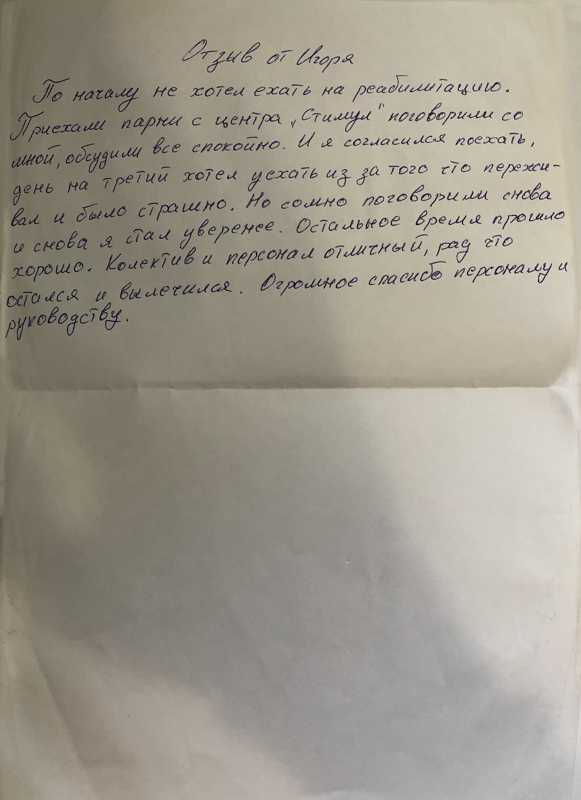 Отзыв от Игоря
По началу не хотел ехать на реабилитацию.
Приехали парни с центра „Стимул" поговорили со
мной, обсудили все спокойно. И я согласился поехать,
день на третий хотел уехать из за того что пережи-
вал и было страшно. Но сомно поговорили снова
и снова я стал уверенее. Остальное время прошло
хорошо. Колектив и персонал отличный, рад что
остался и вылечился. Огромное спасибо персоналу и
руководству.